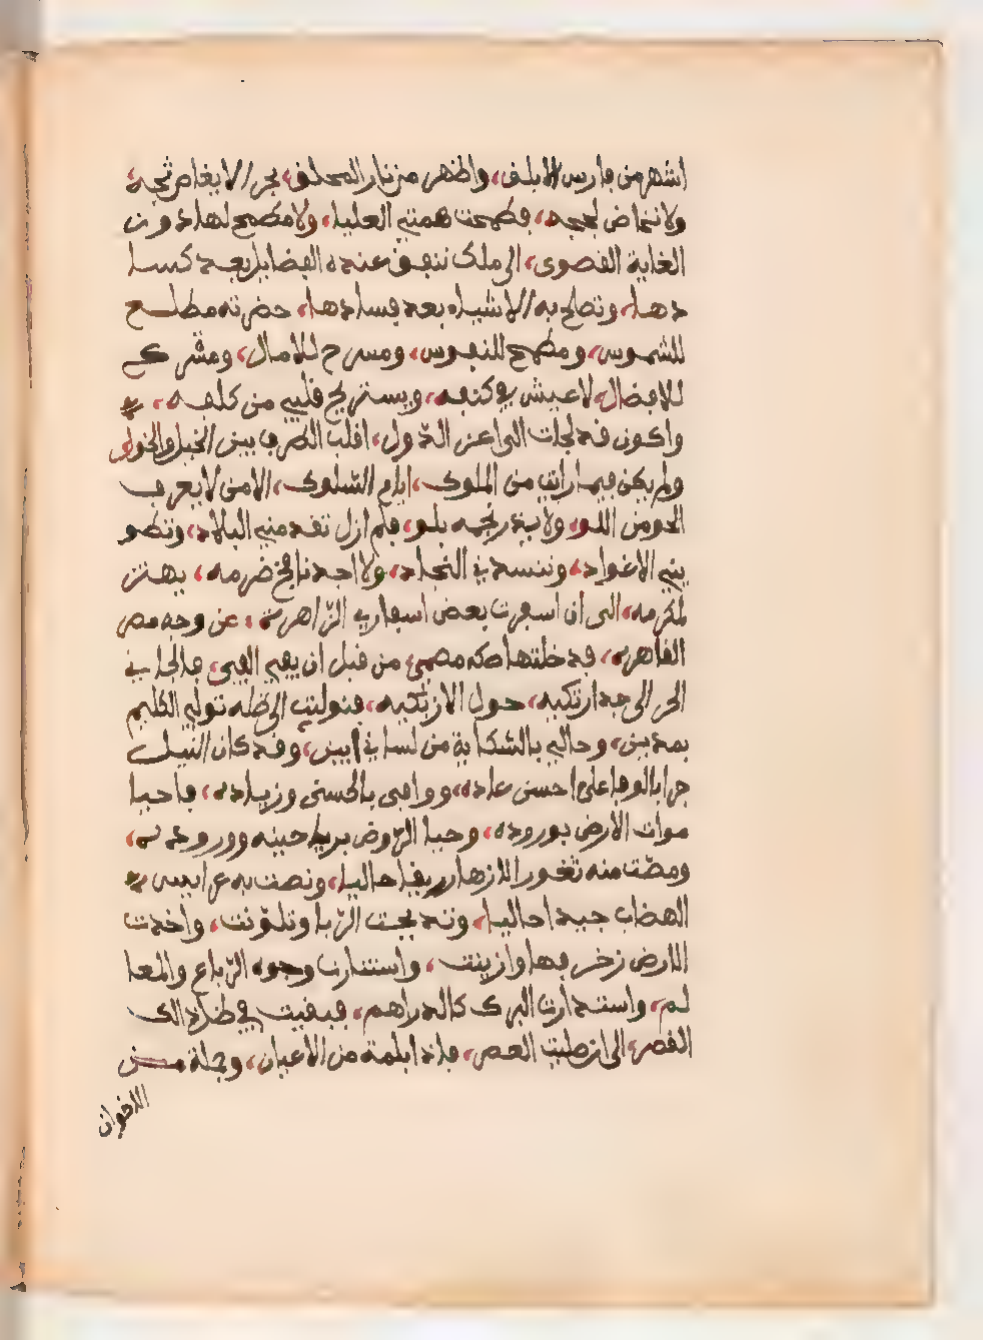 اشهر من فارس الابلق، واظهر من نار المحلق، بحر الايغاض ثجه،
ولا تخاض لججه، فطمحت همتي العليا، ولا مطمح لها دون
الغاية القصوى، الى ملك تنفق عنده الفضايل بعد كسا
دها، وتصلح به الاشياء بعد فسادها، حضرته مطلع
للشموس، ومطمح للنفوس، ومسرح للامال، ومشرع
للافضال، لاعيش في كنفه، ويستريح قلبي من كلفه،
واكون قد لجات الى اعز الدول، اقلب الطرف بين الخيل والخول
ولم يكن فيما رايت من الملوك، ايام السلوك، الا من لا يعرف
الحو من اللو، ولا يتدرنجمه بلو، فلم ازل تقدمني البلاد، وتطو
يني الاغواد، وتنسدني النجاد، ولا اجد نافخ ضرمه، يهتز
لمكرمه، الى ان اسفرت بعض اسفاري الزاهرة، عن وجه مصر
القاهرة، فدخلتها صكه مصمي، من قبل ان يفي الفي، فالجاني
الحر الى جدار تكيه، حول الازبكيه، فتوليت الى ظله تولي الكليم
بمدين، وحالي بالشكاية من لساني ابين، وقد كان النيل
جرا بالوفا على احسن عاده، ووافى بالحسنى وزياده، فاحيا
موات الارض بوروده، وحيا الروض برياحينه ووروده،
ومصت منه ثغور الازهار ريقا حاليا، ونصت به عرايس
الهضاب جيدا حاليا، وتدبجت الربا وتلونت، واخذت
الارض زخرفها وازينت، واستنارت وجوه الرباع والمعا
لم، واستدارت البرك كالدراهم، فبقيت في ظل ذالك
القصر، الى ان صليت العصر، فاذا بلمة من الاعيان، وجملة من
الاخوان